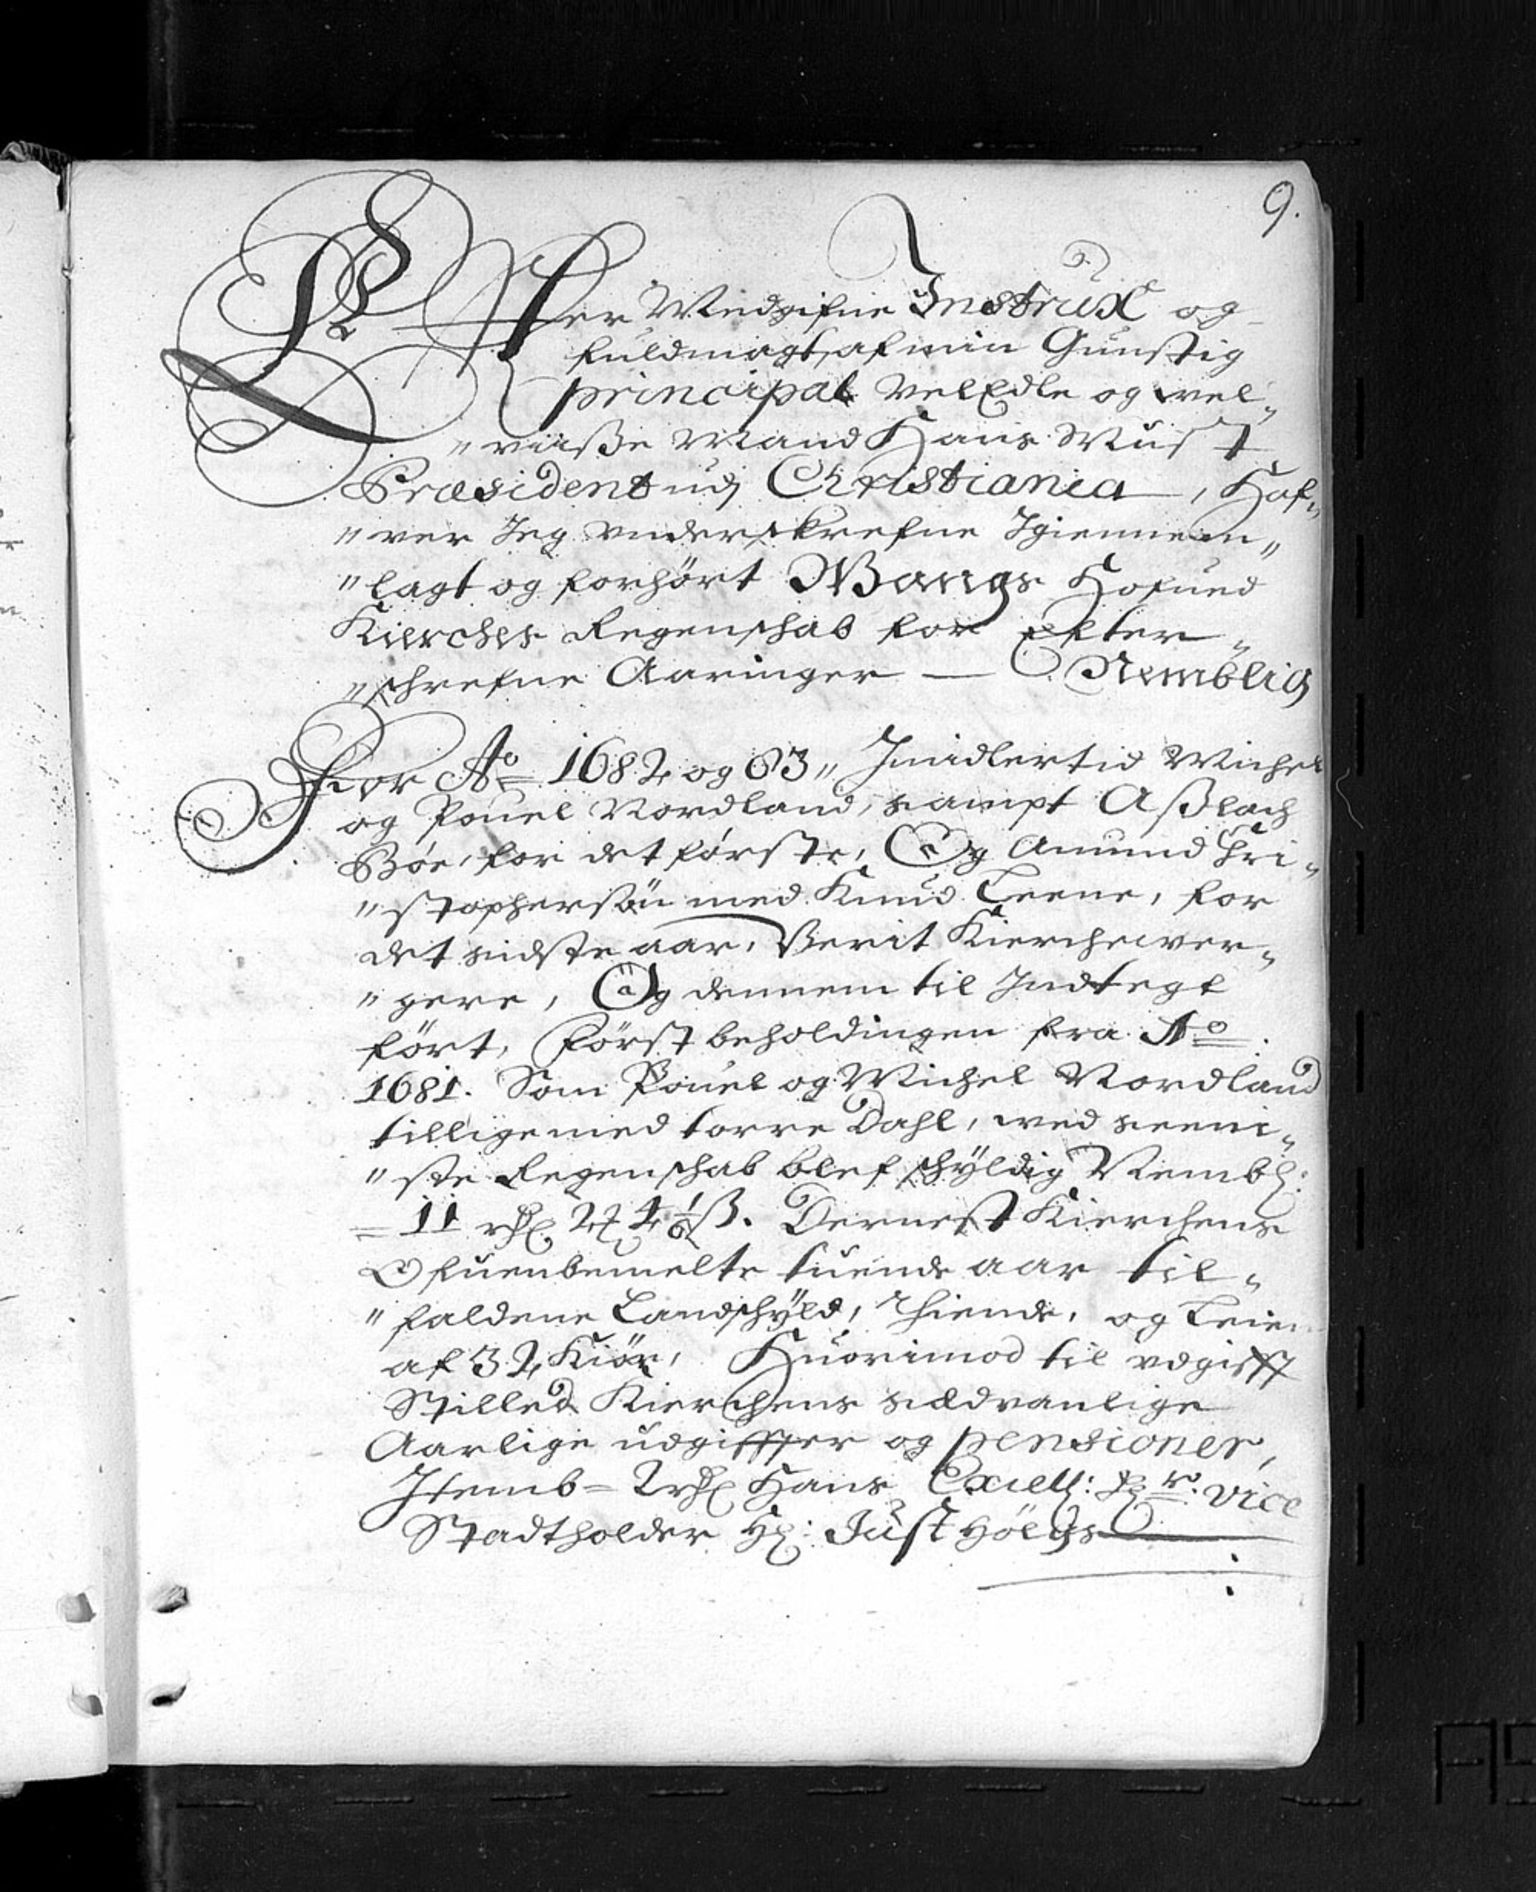 9.
Efter Medgifne Instrux og
fuldmagt, af min Gunstig
principal VelEdle og wel„
„viiße Mand Hans Must
Præsident udj Christiania, Haf„
„ver Jeg vnderskrefne Igiennem„
„lagt og forhørt Wangs Hofued
Kierches Regenschab for Efter„
„schrefne Aaringer — Nemblig
For Aᵒ 1682 og 83„ Imidlertid Michel
og Pouel Nordland, sampt Aßlach
Böe, for det förste, Og Amund Chri„
„stophersøn med Knud Leene, for
det sidste aar, Verit Kierchewer„
„gere, Og dennem til Indtegt
fört, Först beholdingen fra Aᵒ
1681. Som Pouel og Michel Nordland
tilligemed torre Dahl, wed seeni„
„ste Regenschab blef schÿldig Nembl:
= 11 rdr 2 ꝉ 4 1/6 ß. Dernest Kierchens
Ofuenbemelte tuende aar til„
„faldene Landschÿld, Thiende, og Leien
af 32 Kiör, Huorimod til vdgifft
Stilled Kierchens sædvanlige
Aarlige udgiffter og pensioner,
Jtemb = 2 rdr Hans Excell: Hr. vice
Stadtholder Hr: Just Höegs